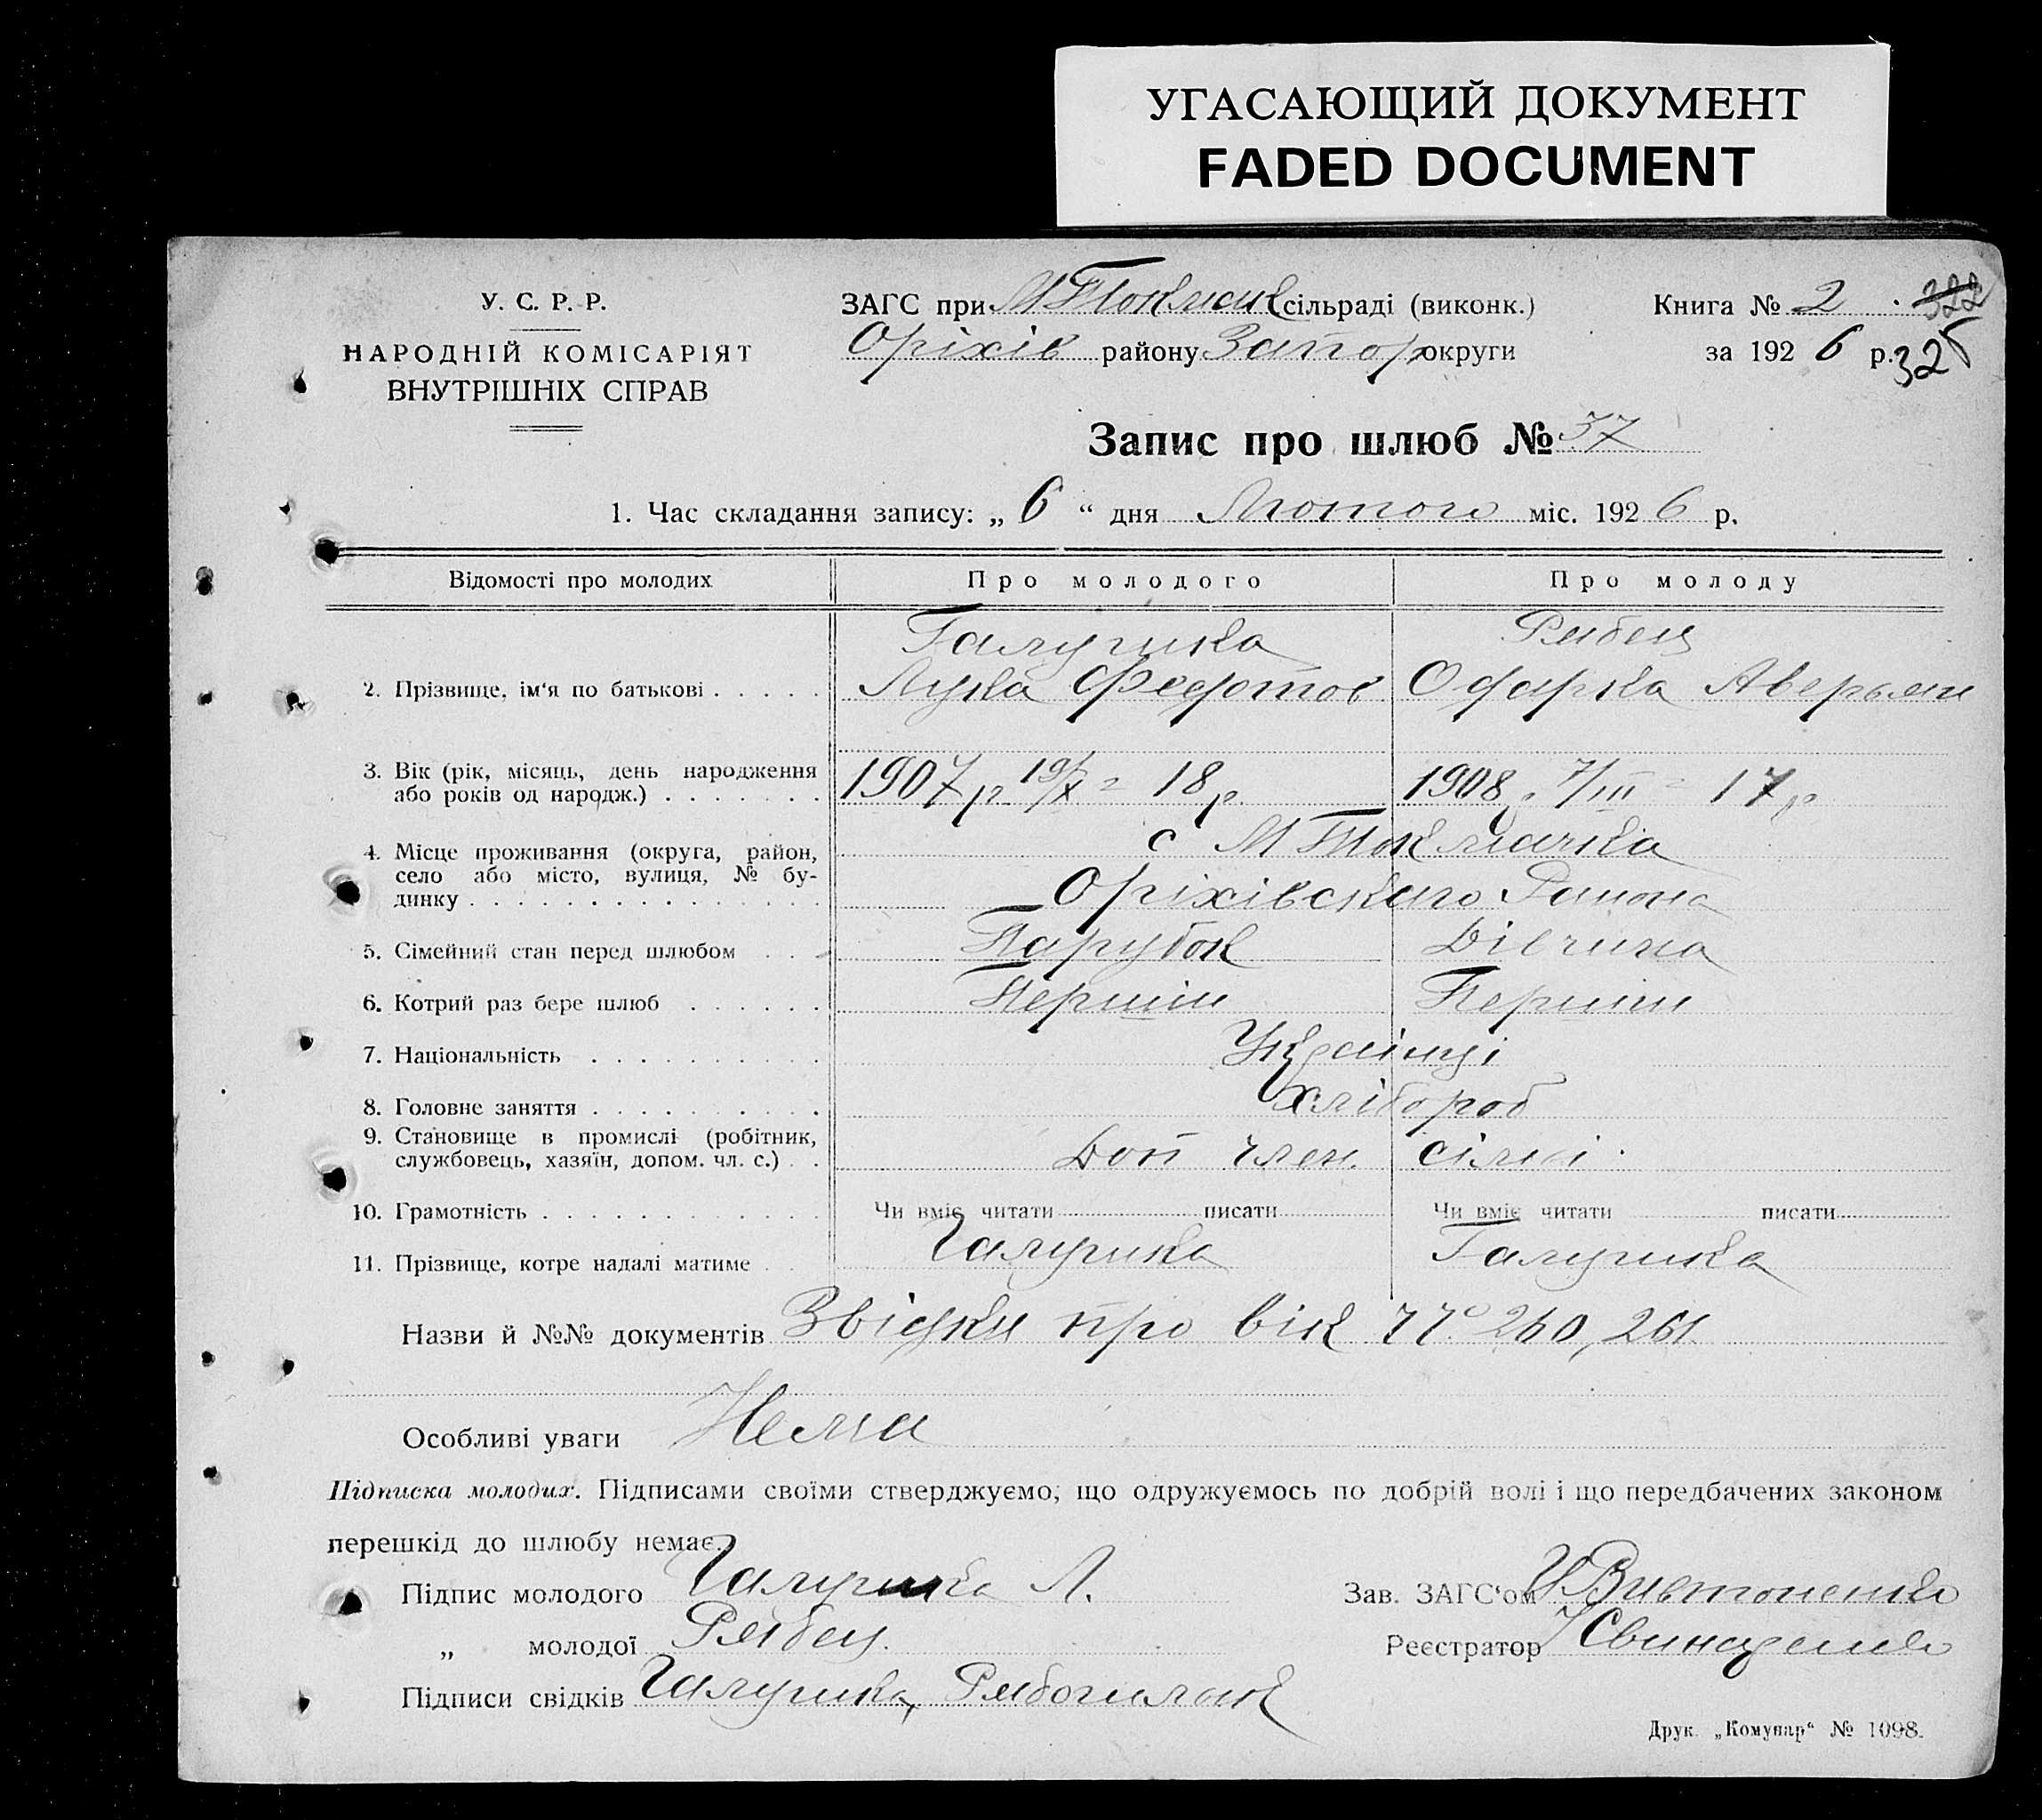 УГАСАЮЩИЙ ДОКУМЕНТ
FADED DOCUMENT
У. С. Р. Р.
НАРОДНІЙ КОМІСАРІЯТ
ВНУТРІШНІХ СПРАВ
ЗАГС при М Токмак сільраді (виконк.)
Оріхів району Запор округи
Книга № 2 322
за 192 6 р. 325
Запис про шлюб № 37
1. Час складання запису: „ 6 “ дня Лютого міс. 192 6 р.
Відомості про молодих Про молодого Про молоду
Галушка Рябец
2. Прізвище, ім'я по батькові . . . . . Лука Федотов Одарка Аверьян
3. Вік (рік, місяць, день народження
або років од народж.) . . . . . . . 1907 р 19/X = 18 р 1908 р 7/III = 17 р
4. Місце проживання (округа, район, с М Токмачка
село або місто, вулиця, № бу-
динку . . . . . . . . . . . . . . . Оріхівского Района
5. Сімейний стан перед шлюбом . . . Парубок Дівчина
6. Котрий раз бере шлюб . . . . . . Перший Перший
7. Національність . . . . . . . . . Українці
8. Головне заняття . . . . . . . . . Хлібороб
9. Становище в промислі (робітник,
службовець, хазяїн, допом. чл. с.) . . Доп член. сімї.
10. Грамотність . . . . . . . . . . . Чи вміє читати писати Чи вміє читати писати
11. Прізвище, котре надалі матиме . . Галушка Галушка
Назви й №№ документів Звідки про вік № 260, 261
Особливі уваги Нема
Підписка молодих. Підписами своїми стверджуємо, що одружуємось по добрій волі і що передбачених законом
перешкід до шлюбу немає.
Підпис молодого Галушка Л. Зав. ЗАГС'ом
„ молодої Рябец. Реєстратор
Підписи свідків Галушка,
Друк. „Комунар“ № 1098.